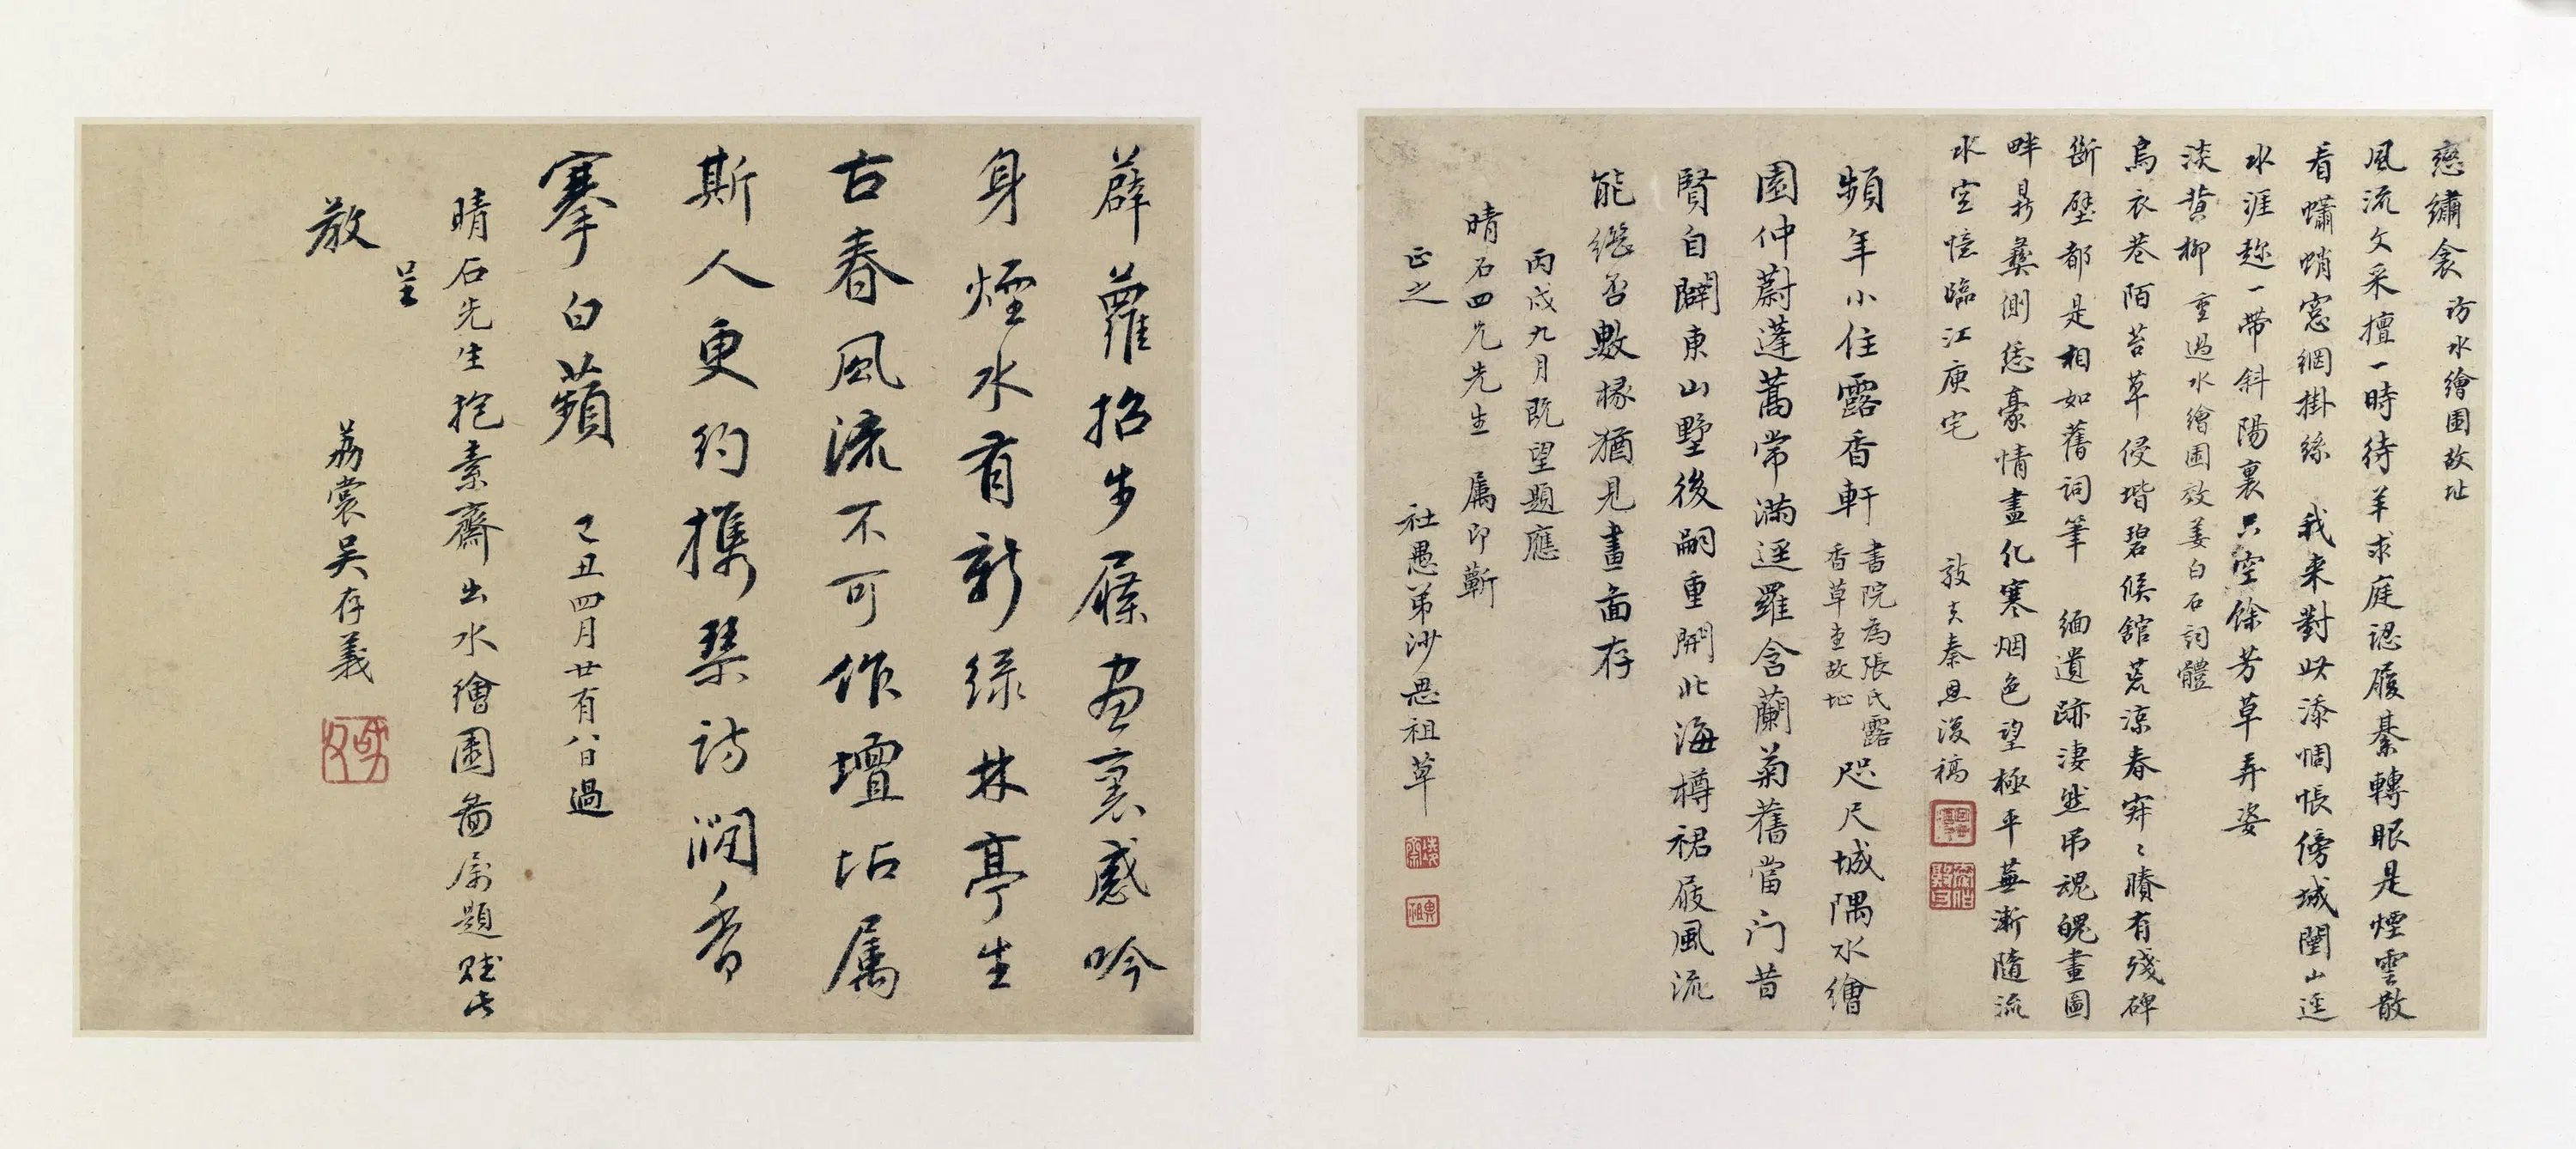 戀繡衾 訪水繪園故址
風流文采擅一時待羊求庭認履綦轉眼是煙雲散
看蠨蛸窓網掛絲 我来對此添惆悵傍城闉山逕
水涯趁一帶斜陽裏只空餘芳草弄姿
淡黄柳 重過水繪園效姜白石詞體
烏衣巷陌苔草侵堦碧候舘荒涼春寂〻賸有殘碑
斷壁都是相如舊詞筆 緬遺跡淒然弔魂魄畫圖
畔鼎彝側恁豪情盡化寒烟色望極平蕪漸隨流
水空憶臨江庾宅
敦夫秦恩復稿
頻年小住露香軒 書院為張氏露
香草堂故址 咫尺城隅水繪
園仲蔚蓬蒿常滿逕羅含蘭菊舊當门昔
賢自闢東山墅後嗣重開北海樽裙屐風流
能繼否數椽猶見畫畐存
丙戌九月既望題應
晴石四兄先生 属即蘄
正之
社愚弟沙思祖草
薜蘿招步屧畫裏感吟
身煙水有新緑林亭生
古春風流不可作壇坫属
斯人更約攜琴訪澗香
搴白蘋
己丑四月廿有八日過
晴石先生抱素齋出水繪園畐属題賦此
呈
教
荔裳吴存義